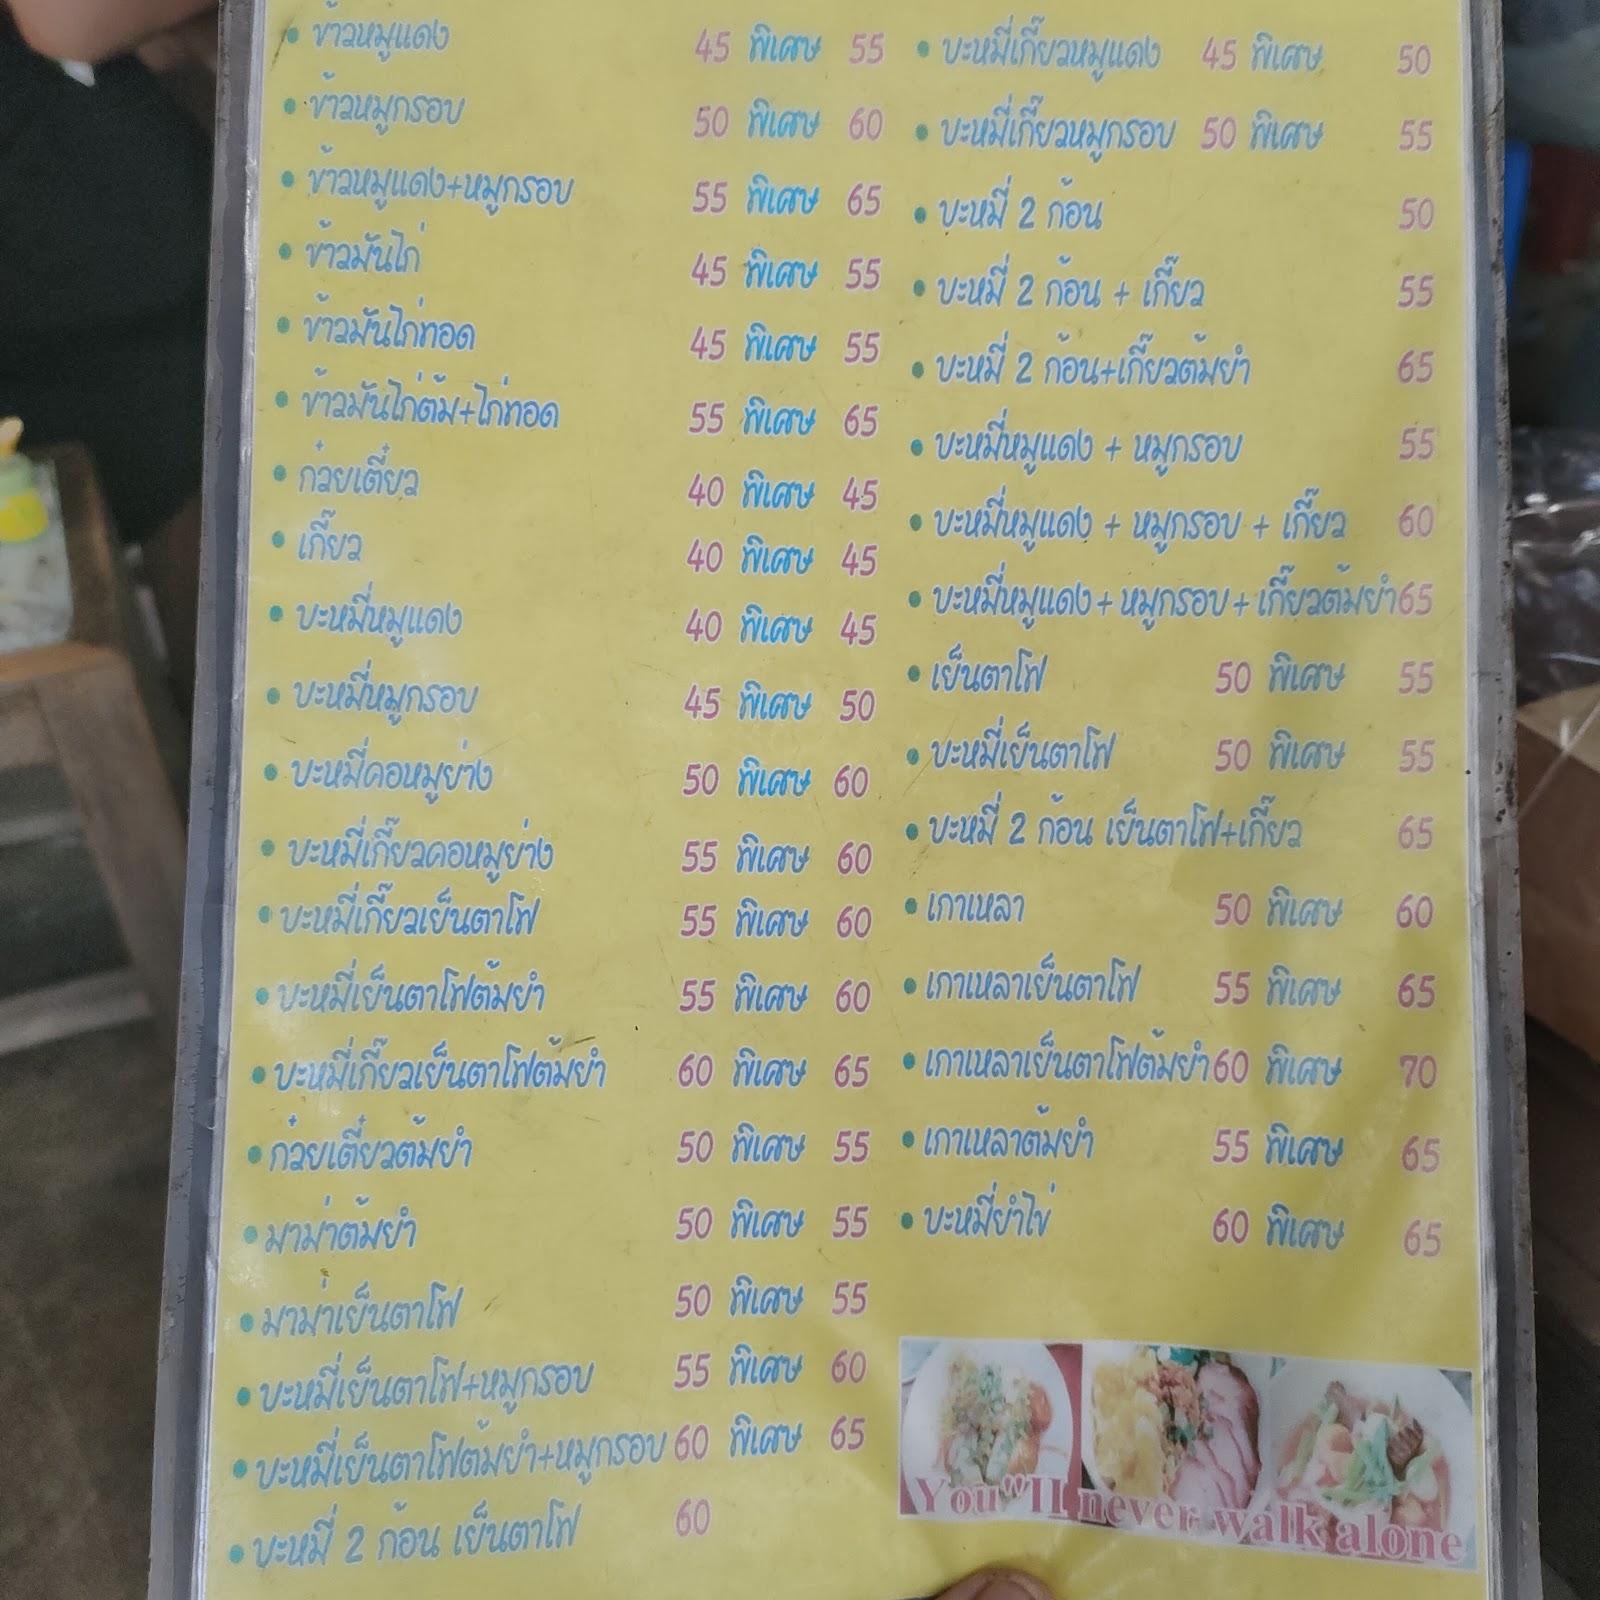 ข้าวหมูแดง 45 พิเศษ 55
ข้าวหมูกรอบ 50 พิเศษ 60
ข้าวหมูแดง+หมูกรอบ 55 พิเศษ 65
ข้าวมันไก่ 45 พิเศษ 55
ข้าวมันไก่ทอด 45 พิเศษ 55
ข้าวมันไก่ต้ม+ไก่ทอด 55 พิเศษ 65
ก๋วยเตี๋ยว 40 พิเศษ 45
เกี๊ยว 40 พิเศษ 45
บะหมี่หมูแดง 40 พิเศษ 45
บะหมี่หมูกรอบ 45 พิเศษ 50
บะหมี่คอหมูย่าง 50 พิเศษ 60
บะหมี่เกี๊ยวคอหมูย่าง 55 พิเศษ 60
บะหมี่เกี๊ยวเย็นตาโฟ 55 พิเศษ 60
บะหมี่เย็นตาโฟต้มยำ 55 พิเศษ 60
บะหมี่เกี๊ยวเย็นตาโฟต้มยำ 60 พิเศษ 65
ก๋วยเตี๋ยวต้มยำ 50 พิเศษ 55
มาม่าต้มยำ 50 พิเศษ 55
มาม่าเย็นตาโฟ 50 พิเศษ 55
บะหมี่เย็นตาโฟ+หมูกรอบ 55 พิเศษ 60
บะหมี่เย็นตาโฟต้มยำ+หมูกรอบ 60 พิเศษ 65
บะหมี่ 2 ก้อน เย็นตาโฟ 60
บะหมี่เกี๊ยวหมูแดง 45 พิเศษ 50
บะหมี่เกี๊ยวหมูกรอบ 50 พิเศษ 55
บะหมี่ 2 ก้อน 50
บะหมี่ 2 ก้อน + เกี๊ยว 55
บะหมี่ 2 ก้อน+เกี๊ยวต้มยำ 65
บะหมี่หมูแดง + หมูกรอบ 55
บะหมี่หมูแดง + หมูกรอบ + เกี๊ยว 60
บะหมี่หมูแดง + หมูกรอบ + เกี๊ยวต้มยำ 65
เย็นตาโฟ 50 พิเศษ 55
บะหมี่เย็นตาโฟ 50 พิเศษ 55
บะหมี่ 2 ก้อน เย็นตาโฟ+เกี๊ยว 65
เกาเหลา 50 พิเศษ 60
เกาเหลาเย็นตาโฟ 55 พิเศษ 65
เกาเหลาเย็นตาโฟต้มยำ 60 พิเศษ 70
เกาเหลาต้มยำ 55 พิเศษ 65
บะหมี่ยำไข่ 60 พิเศษ 65
You"ll never walk alone